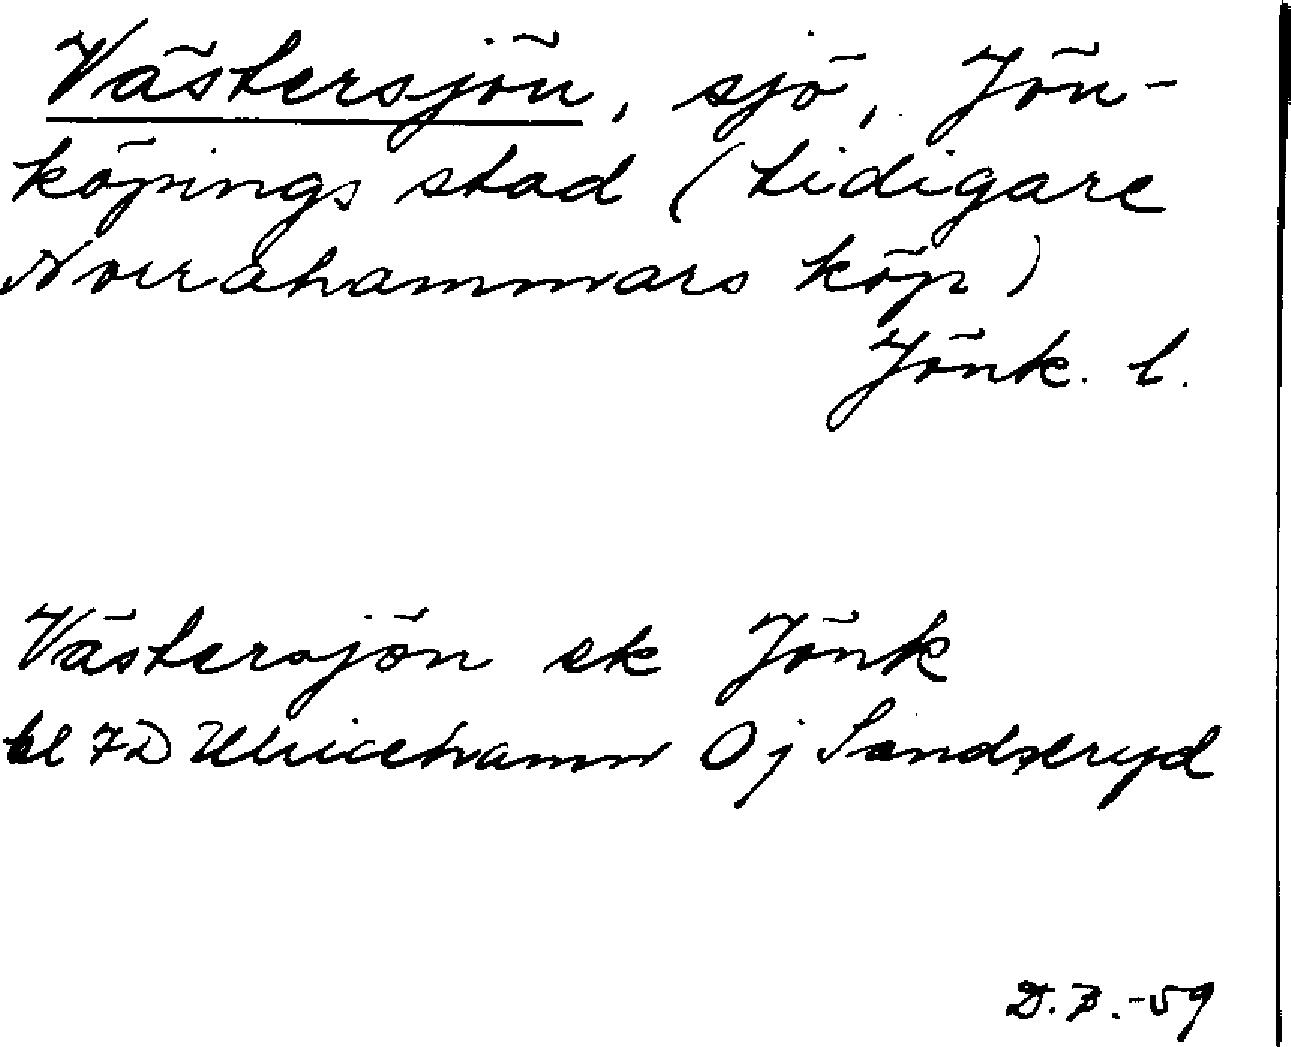 Västersjön, sjö, Jön-
köpings stad (tidigare
Norrahammars köp)
Jönk. l.
Västersjön ek Jönk
bl 7D Ulricehamn Oj Sandseryd
D.B.-59